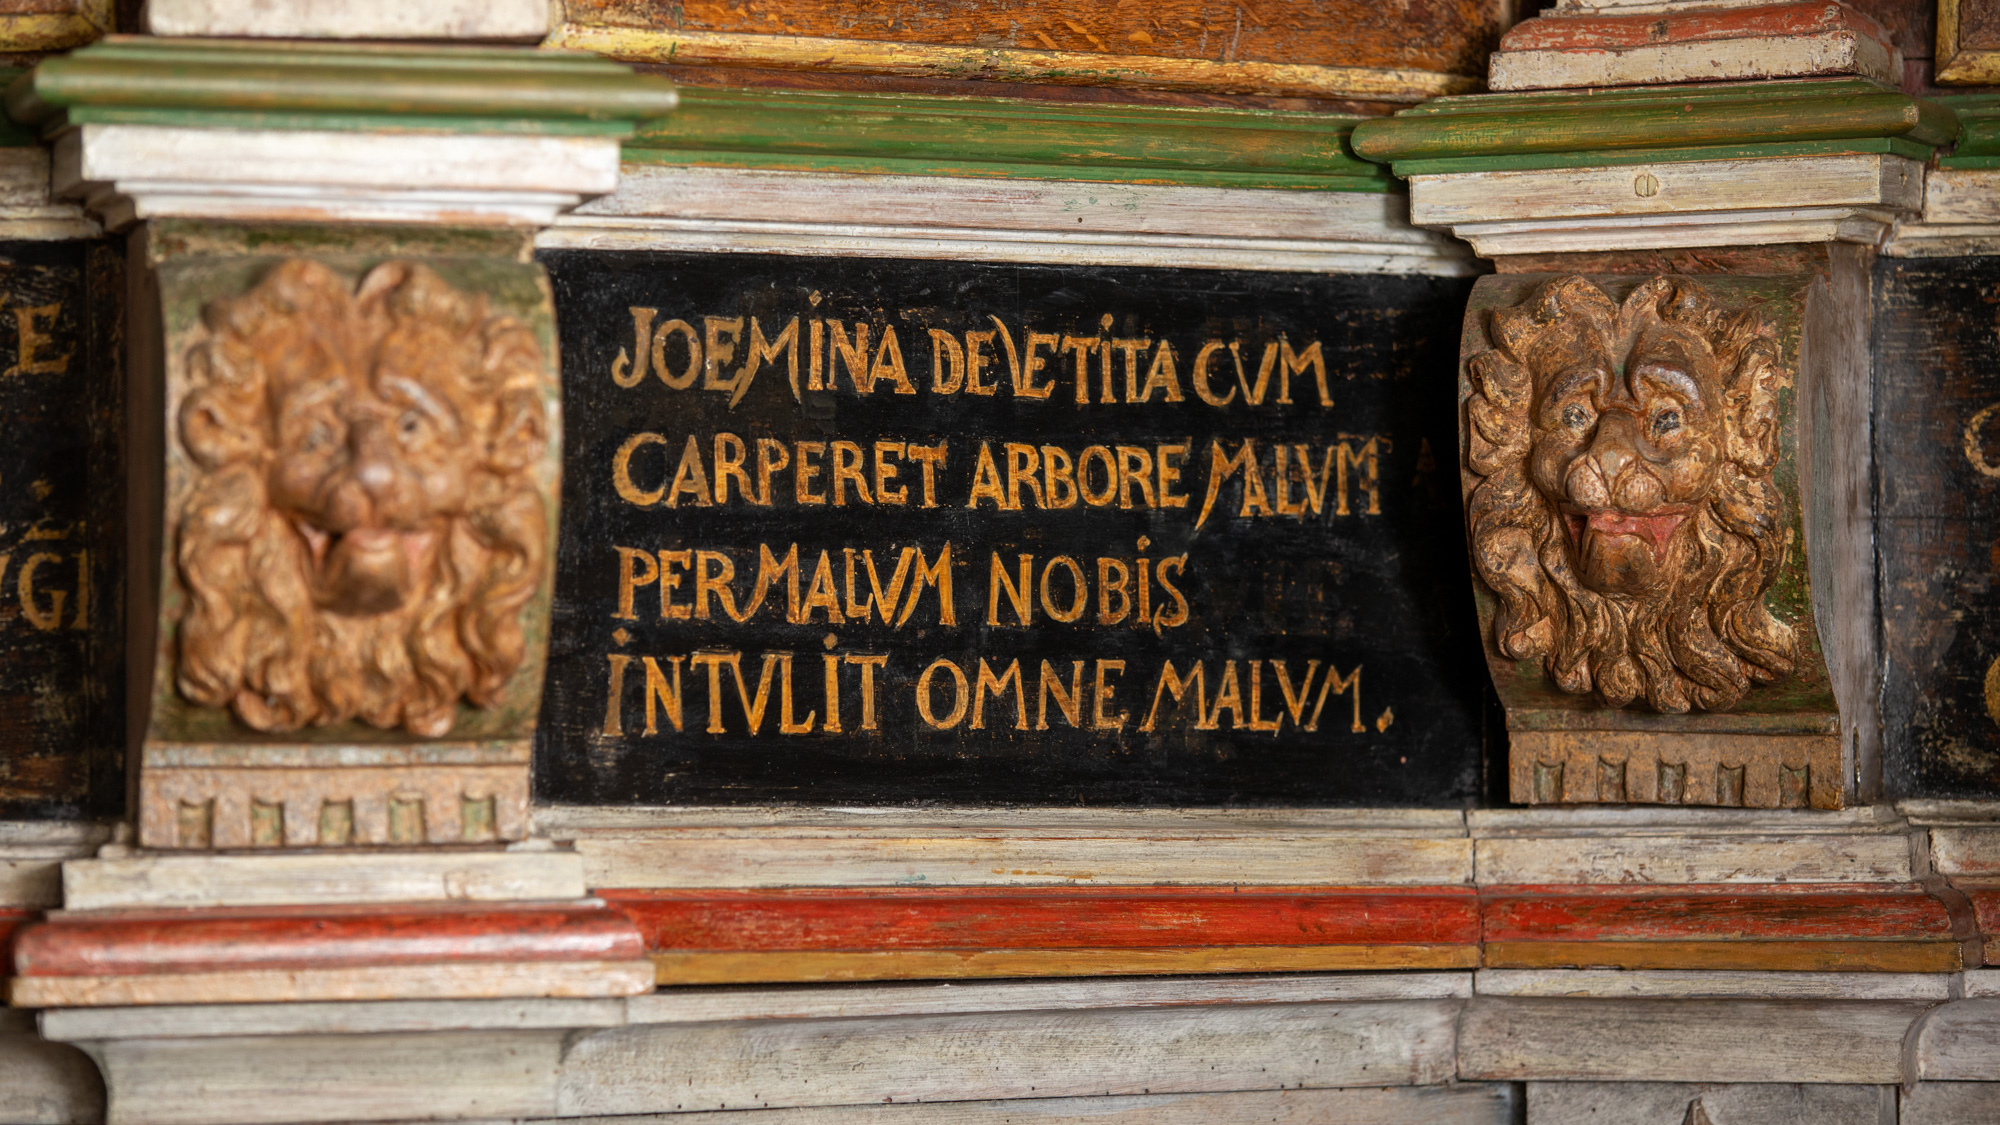 JOEMINA DEVETITA CVM
CARPERET ARBORE MALVM
PER MALVM NOBIS
INTVLIT OMNE MALVM.